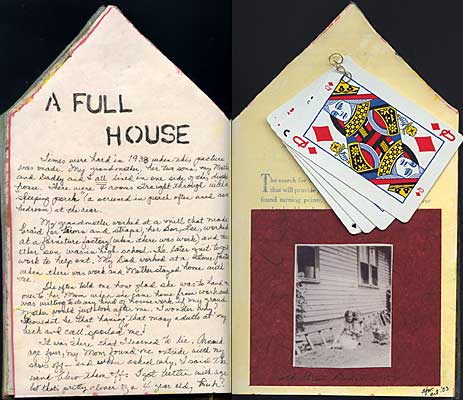 A FULL
HOUSE
Times were hard in 1938 when this picture
was made. My grandmother, her two sons, my Mother
and Daddy and I all lived in one side of this
house. There were rooms straight through with a
sleeping porch (a screened in porch often used as a
bedroom) at the rear.
My grandmother worked at a mill that made
braid for and straps, her son, Lee, worked
at a furniture factory (when there was work) and
other son, was in high school. He later quit to go to
work to help out. My Dad worked at a
when there was work and Mother stayed home with
me.
She often told me how glad she was to hand
me over to her Mom when she came home from work and
was willing to do any kind of house work if my grand
mother would just look after me. I wonder why?
it be that having that many adults at my
beck and call "spoiled" me?
It was there that I learned to lie. Around
age four, my Mom found me outside with my
shoes off - and when asked why, I said "The
wind blew them off." I got better with age
but that's pretty clever for a 4 year old, huh?
Q
Q
Q
The search for
that will provide
found turning point